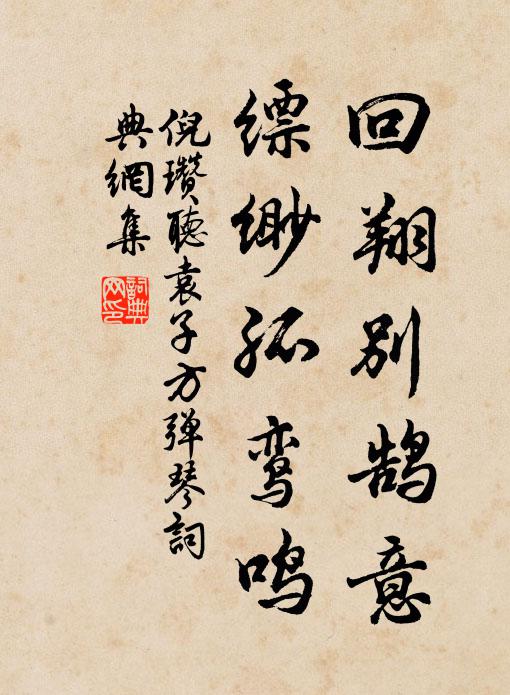 回翔别鹄意
缥缈孤鸾鸣
倪瓚聽袁子方弹琴詞
典網集
詞典網印